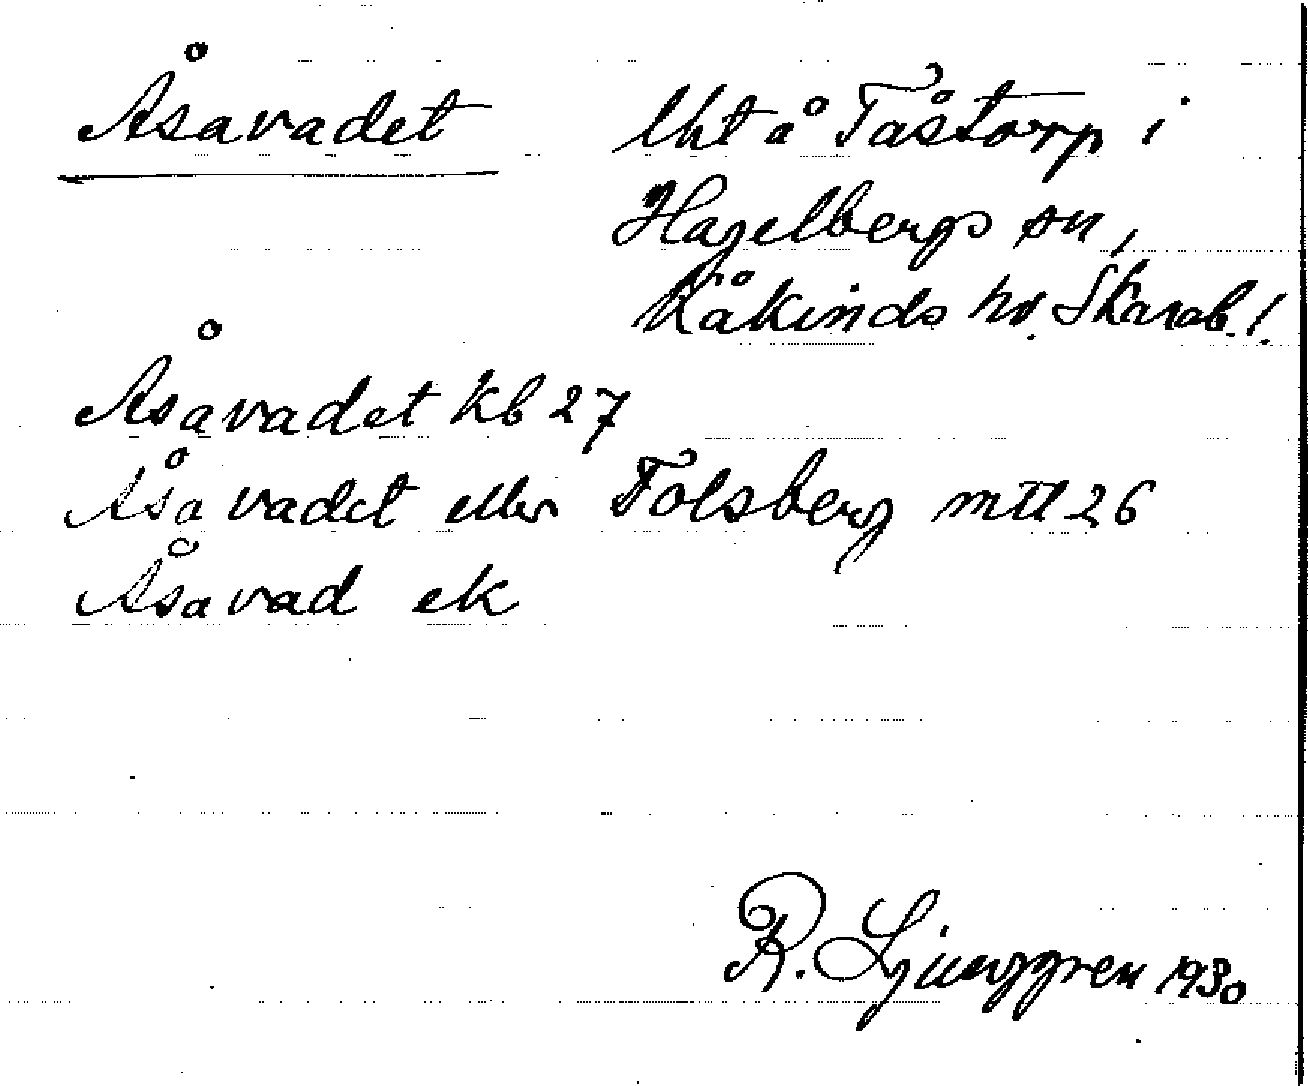 Åsavadet
Uht å Tåstorp i
Hagelbergs sn,
Kåkinds hd. Skarab. l.
Åsavadet kb 27
Åsavadet eller Tolsberg mtl 26
Åsavad ek
R. Ljunggren 1930